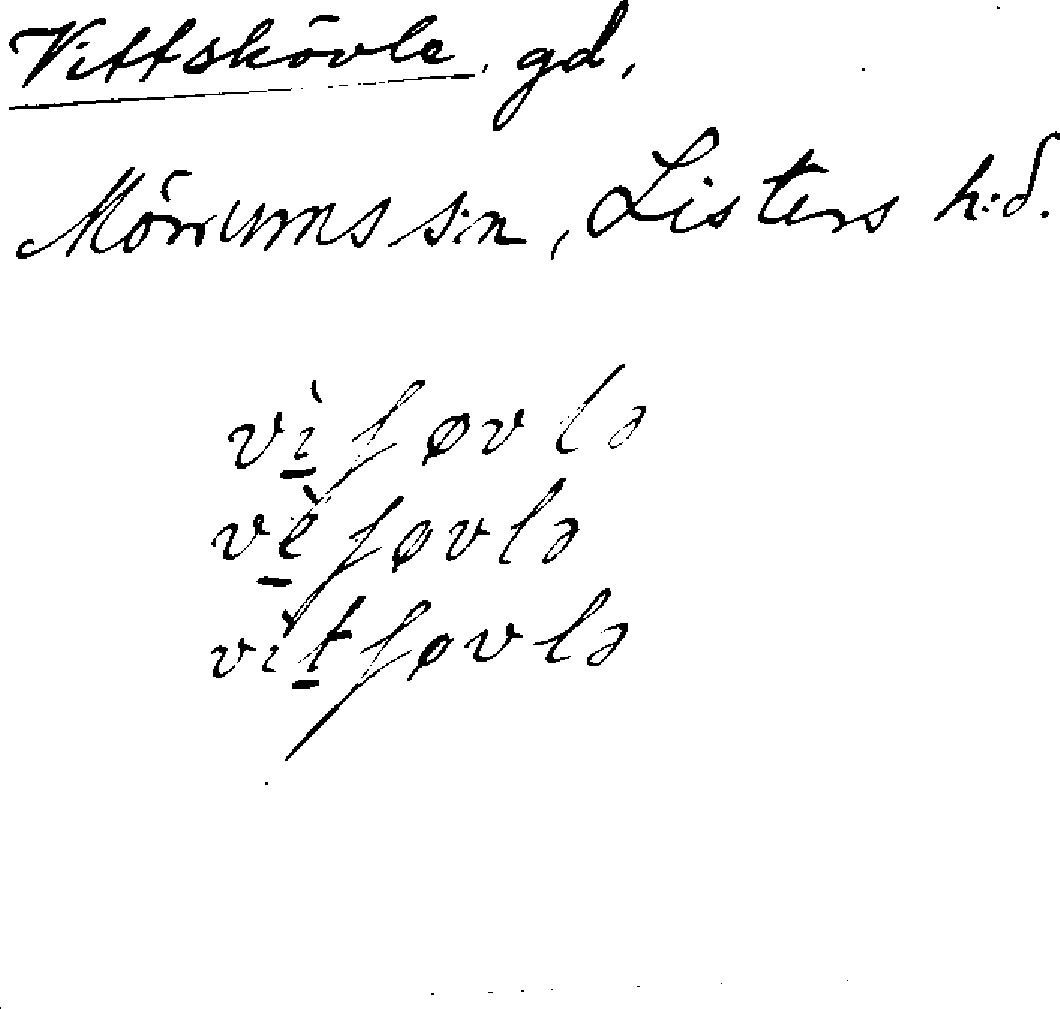 Vittskövle, gd,
Mörrums s:n, Listers h:d.
vì̠ʃøvlə
vè̠ʃøvlə
vìt̠ʃøvlə